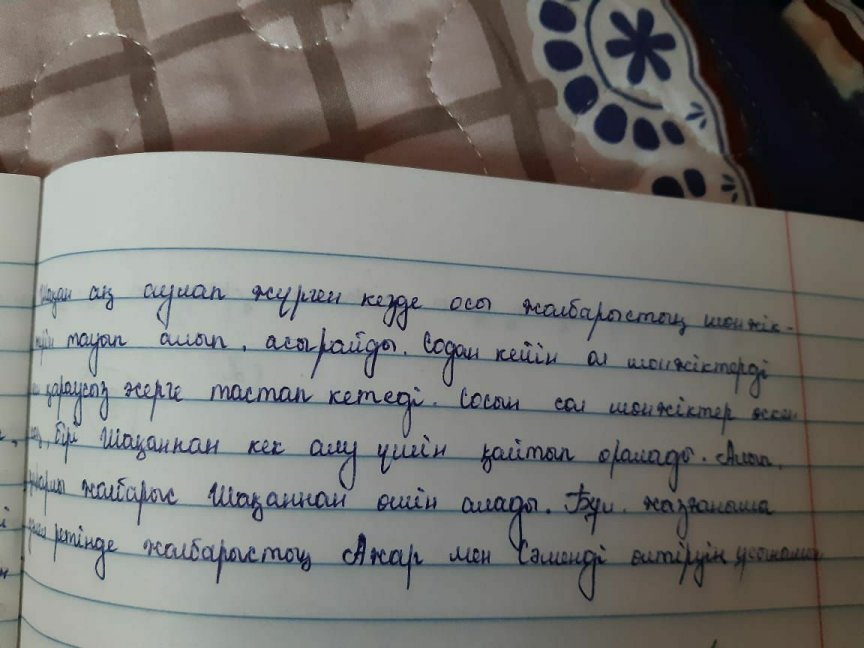 Шақан аң аулап жүрген кезде осы жолбарыстың шөнжік-
тауып алып, асырайды. Содан кейін ол шөнжіктерді
қараусыз жерге тастап кетеді. Сосын сол шөнжіктер өскен
бірі Шақаннан кек алу үшін қайтып оралады. Алып,
жолбарыс Шақаннан өшін алады. Бұл жазғаныма
ретінде жолбарыстың Ажар мен Сәменді өлтіруін